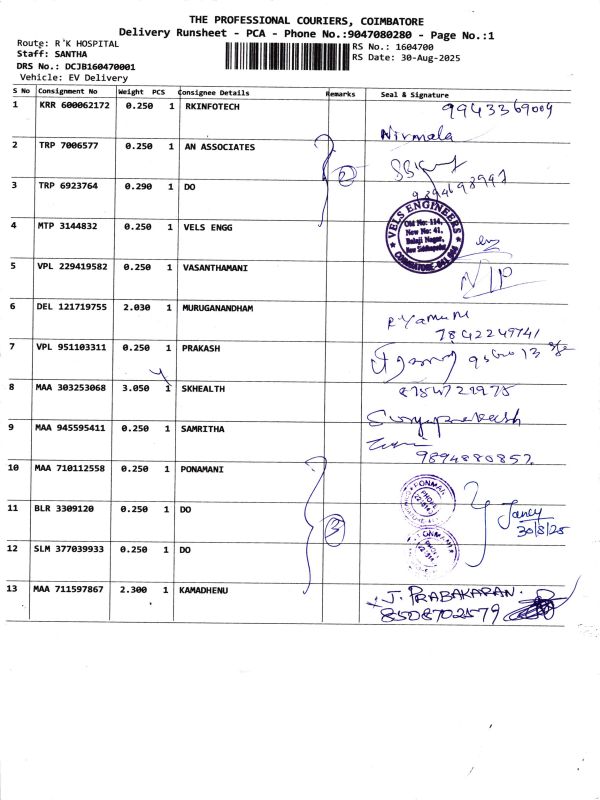 THE PROFESSIONAL COURIERS, COIMBATORE
Delivery Runsheet - PCA - Phone No.:9047080280 - Page No.:1
Route: R'K HOSPITAL
RS No.: 1604700
Staff: SANTHA
RS Date: 30-Aug-2025
DRS No.: DCJB160470001
Vehicle: EV Delivery
S No Consignment No Weight PCS Consignee Details Remarks Seal & Signature
1 KRR 600062172 0.250 1 RKINFOTECH 9943369009
Nirmala
2 TRP 7006577 0.250 1 AN ASSOCIATES
2
3 TRP 6923764 0.290 1 DO
4 MTP 3144832 0.250 1 VELS ENGG
VELS ENGINEERS
Old No: 114,
New No: 41,
Balaji Nagar,
5 VPL 229419582 0.250 1 VASANTHAMANI
6 DEL 121719755 2.030 1 MURUGANANDHAM
7842249741
7 VPL 951103311 0.250 1 PRAKASH
8 MAA 303253068 3.050 1 SKHEALTH
8754721975
Suryaprakash
9 MAA 945595411 0.250 1 SAMRITHA
9894880857
10 MAA 710112558 0.250 1 PONAMANI
11 BLR 3309120 0.250 1 DO
3
Jancy
30/8/25
12 SLM 377039933 0.250 1 DO
13 MAA 711597867 2.300 1 KAMADHENU
J. PRABAKARAN.
8508702579